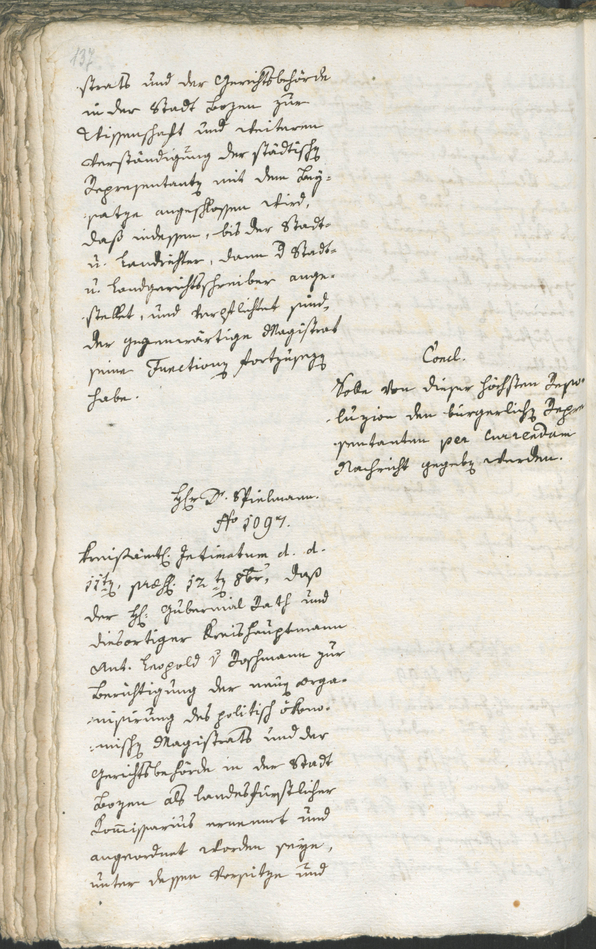 137.
-strats und der Gerichtsbehörde
in der Stadt Bozen zur
Wissenschaft und weiteren
Verständigung der städtischen
Repraesentantz mit dem Bey-
-satze angeschlossen wird,
daß indessen, bis der Stadt-
u. Landrichter, dann d Stadt-
u. Landgerichtsschreiber ange-
-stellet, und verpflichtet sind,
der gegenwärtige Magistrat
seine Functionen fortzusetzen
habe.
Concl.
Solle von dieser höchsten Reso-
-luzion den bürgerlichen Repre-
-sentanten per currendam
Nachricht gegeben werden.
Hr Dr. Spielmann.
No 1097.
Kreisämtl. Intimatum d. d.
11ten, praes. 12ten 8br, daß
der H. Gubernial Rath und
diesortiger Kreishauptmann
Ant. Leopold v Roschmann zur
Berichtigung der neuen Orga-
-nisirung des politisch ökono-
-mischen Magistrats und der
Gerichtsbehörde in der Stadt
Bozen als landesfürstlicher
Kommissarius ernennt und
angeordnet worden seye,
unter dessen Vorsitze und